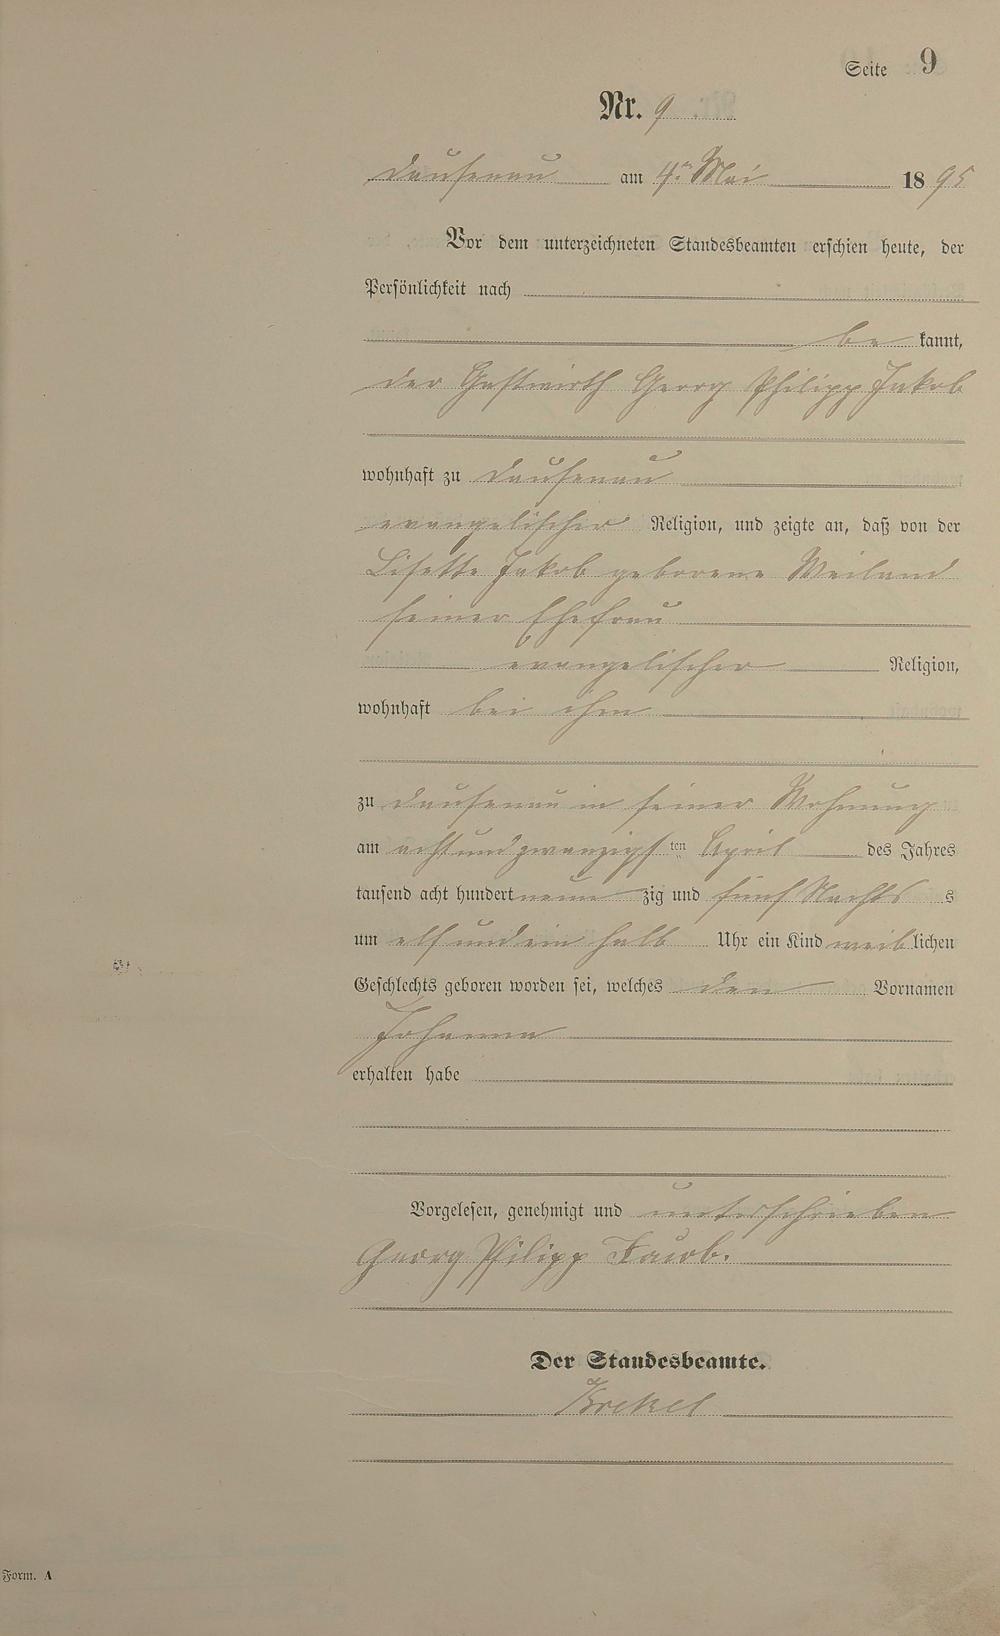 Seite 9
Nr. 9
Dausenau am 4ten Mai 1895
Vor dem unterzeichneten Standesbeamten erschien heute, der
Persönlichkeit nach
be kannt,
der Gastwirth Georg Philipp Jakob
wohnhaft zu Dausenau
evangelischer Religion, und zeigte an, daß von der
Lisette Jakob geborene Weiland
seiner Ehefrau
evangelischer Religion,
wohnhaft bei ihm
zu Dausenau in seiner Wohnung
am achtundzwanzigsten April des Jahres
tausend acht hundert neun zig und fünf Nachts s
um elf und ein halb Uhr ein Kind weiblichen
Geschlechts geboren worden sei, welches den Vornamen
Johanna
erhalten habe
Vorgelesen, genehmigt und unterschrieben
Georg Philipp Jacob.
Der Standesbeamte.
Krekel
Form. A